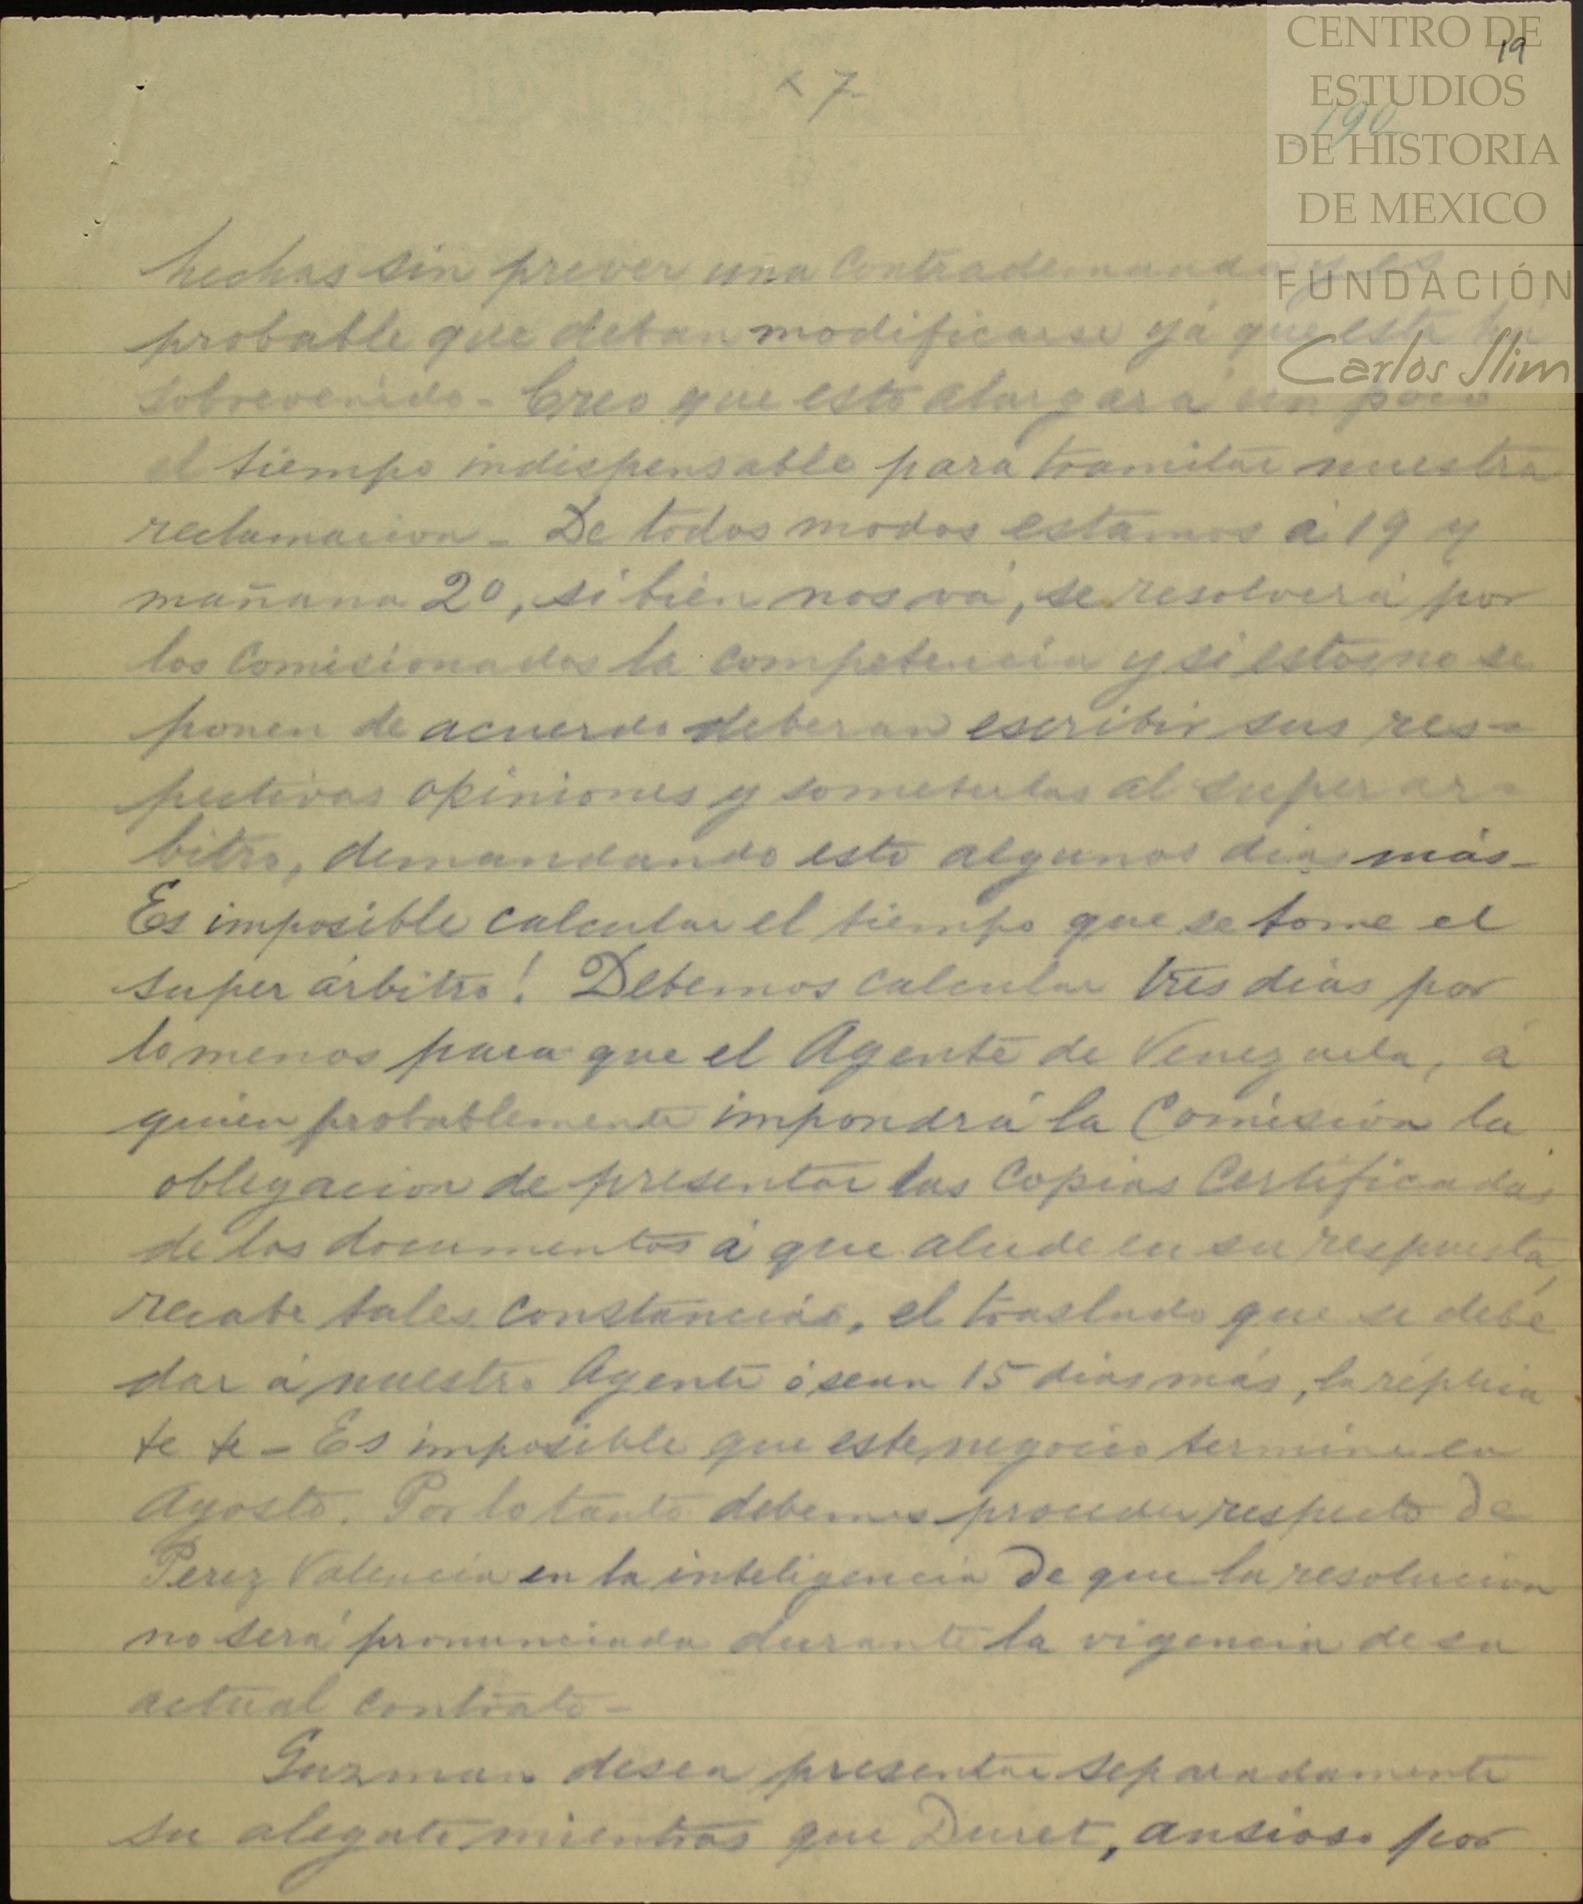 CENTRO DE
ESTUDIOS
DE HISTORIA
DE MEXICO
FUNDACIÓN
Carlos Slim
19
190
7
hechas sin prever una contrademanda y es
probable que deban modificarse yá que esta há
sobrevenido - Creo que esto alargará un poco
el tiempo indispensable para tramitar nuestra
reclamacion - De todos modos estamos á 19 y
mañana 20, si bien nos vá, se resolverá por
los Comisionados la competencia y si estos no se
ponen de acuerdo deberan escribir sus res-
pectivas opiniones y someterlas al super ar-
bitro, demandando esto algunos dias más -
Es imposible calcular el tiempo que se tome el
super árbitro! Debemos calcular tres dias por
lo menos para que el Agente de Venezuela, á
quien probablemente impondrá la Comision la
obligacion de presentar las Copias Certificadas
de los documentos á que alude en su respuesta,
recabe tales constancias, el traslado que se debe
dar á nuestro Agente ó sean 15 dias más, la réplica
te te - Es imposible que este negocio termine en
Agosto. Por lo tanto debemos proceder respecto de
Perez Valencia en la inteligencia de que la resolucion
no será pronunciada durante la vigencia de su
actual contrato -
Guzman desea presentar separadamente
su alegato mientras que Duret, ansioso por